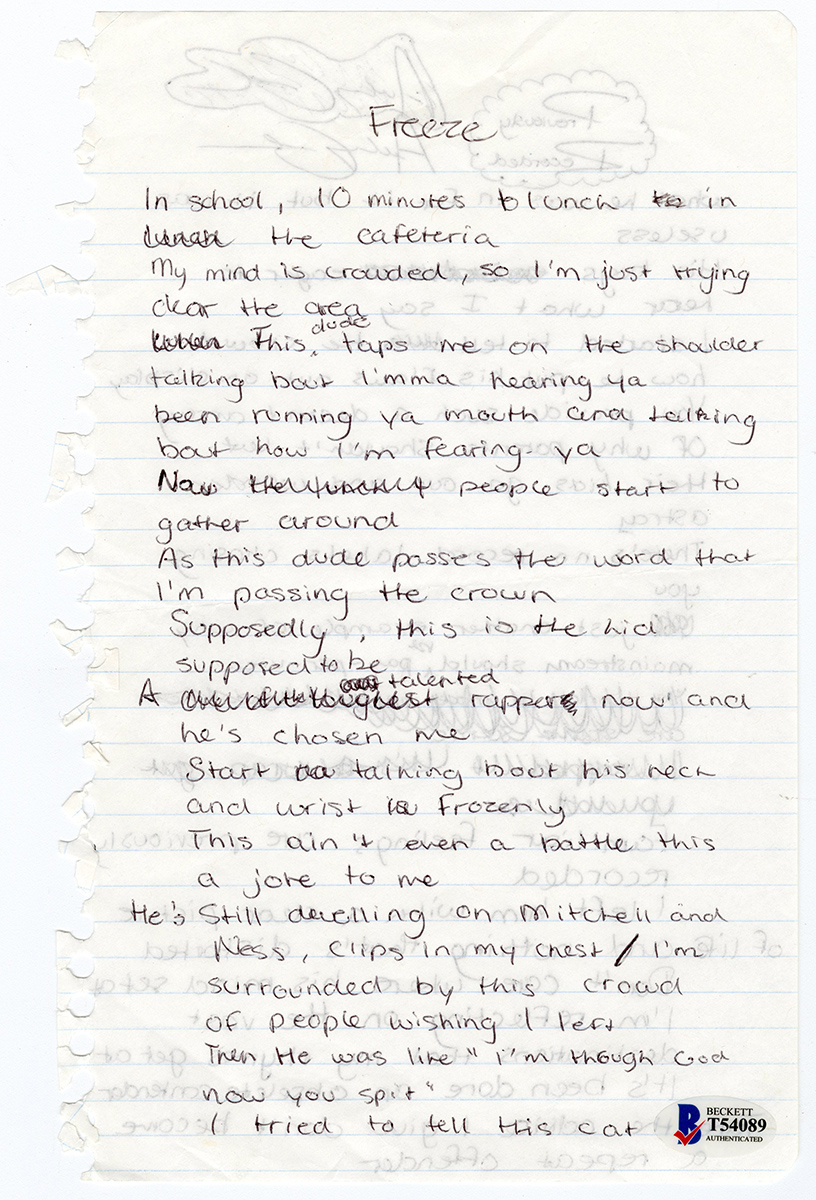 Freeze
In school, 10 minutes to lunch in
the cafeteria
My mind is crowded, so I'm just trying
clear the area
This dude taps me on the shoulder
talking bout I'mma hearing ya
been running ya mouth and talking
bout how I'm fearing ya
Now people start to
gather around
As this dude passes the word that
I'm passing the crown
Supposedly, this is the kid
supposed to be
A talented rapper now and
he's chosen me
Start talking bout his neck
and wrist frozenly
This ain't even a battle this
a joke to me
He's Still dwelling on Mitchell and
Ness, clips in my chest / I'm
surrounded by this crowd
of people wishing I left
Then He was like "I'm though God
now you spit"
I tried to tell this cat
BECKETT
T54089
AUTHENTICATED